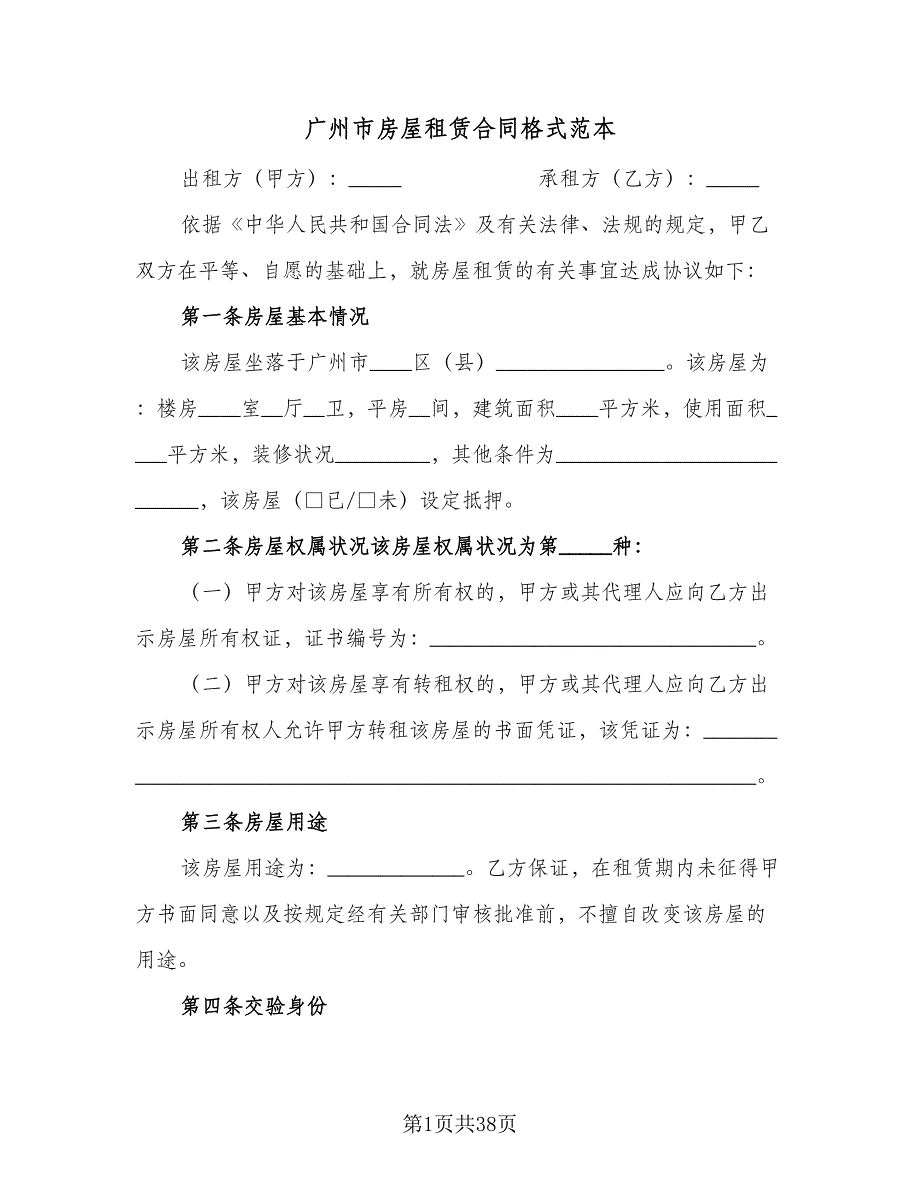 广州市房屋租赁合同格式范本
出租方（甲方）：_____ 承租方（乙方）：_____
依据《中华人民共和国合同法》及有关法律、法规的规定，甲乙
双方在平等、自愿的基础上，就房屋租赁的有关事宜达成协议如下：
第一条房屋基本情况
该房屋坐落于广州市____区（县）________________。该房屋为
：楼房____室__厅__卫，平房__间，建筑面积____平方米，使用面积_
___平方米，装修状况_________，其他条件为_____________________
______，该房屋（□已/□未）设定抵押。
第二条房屋权属状况该房屋权属状况为第_____种：
（一）甲方对该房屋享有所有权的，甲方或其代理人应向乙方出
示房屋所有权证，证书编号为：_______________________________。
（二）甲方对该房屋享有转租权的，甲方或其代理人应向乙方出
示房屋所有权人允许甲方转租该房屋的书面凭证，该凭证为：_______
___________________________________________________________。
第三条房屋用途
该房屋用途为：_____________。乙方保证，在租赁期内未征得甲
方书面同意以及按规定经有关部门审核批准前，不擅自改变该房屋的
用途。
第四条交验身份
第1页共38页